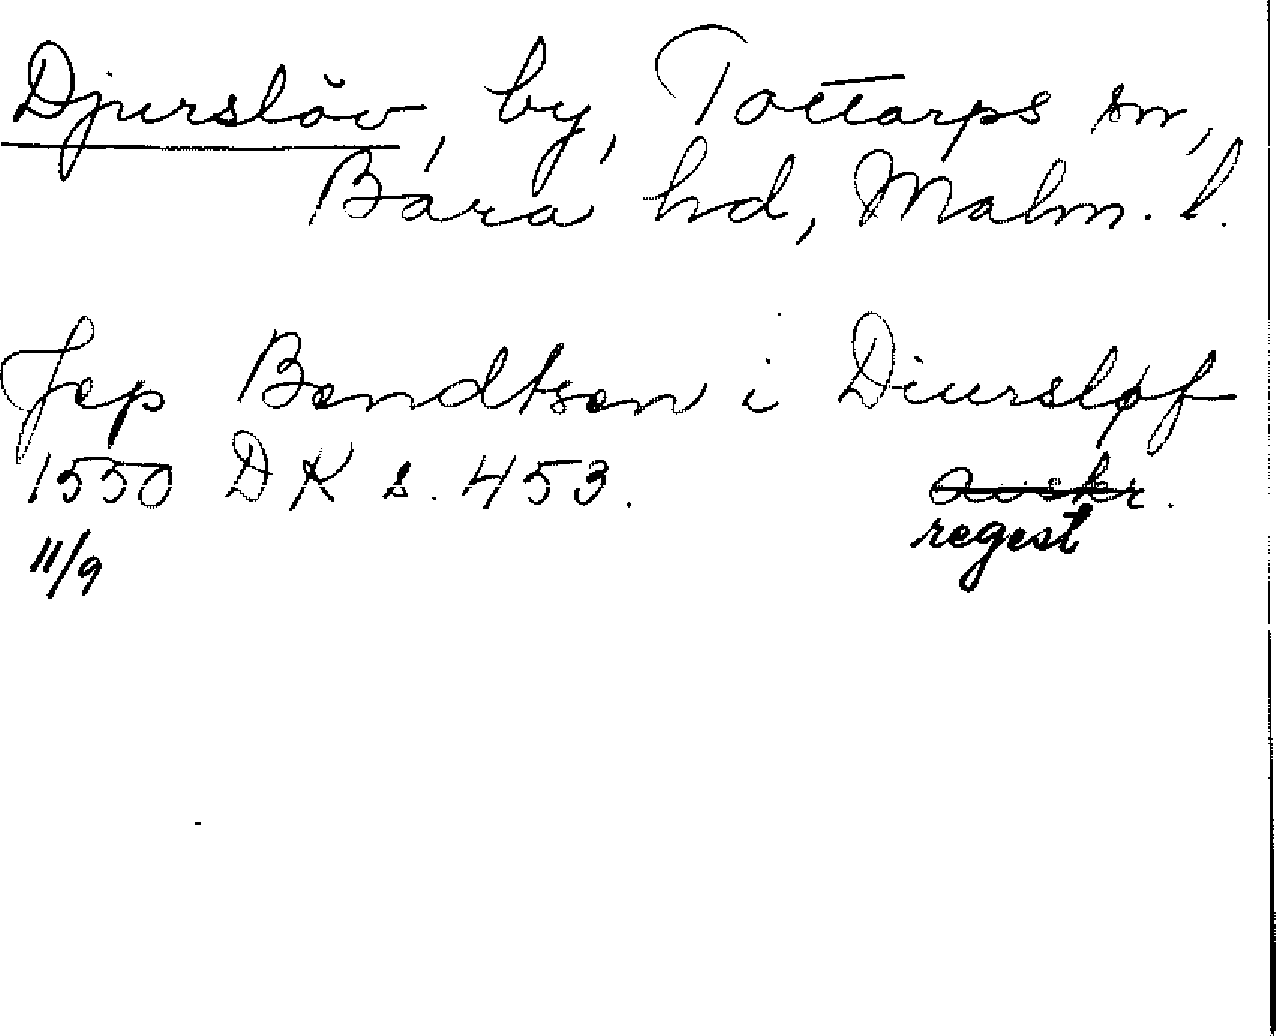 Djurslöv, by, Tottarps sn,
Bara hd, Malm. l.
Jep Bendtsen i Diursløf
1550 DK s. 453. avskr.
regest
11/9